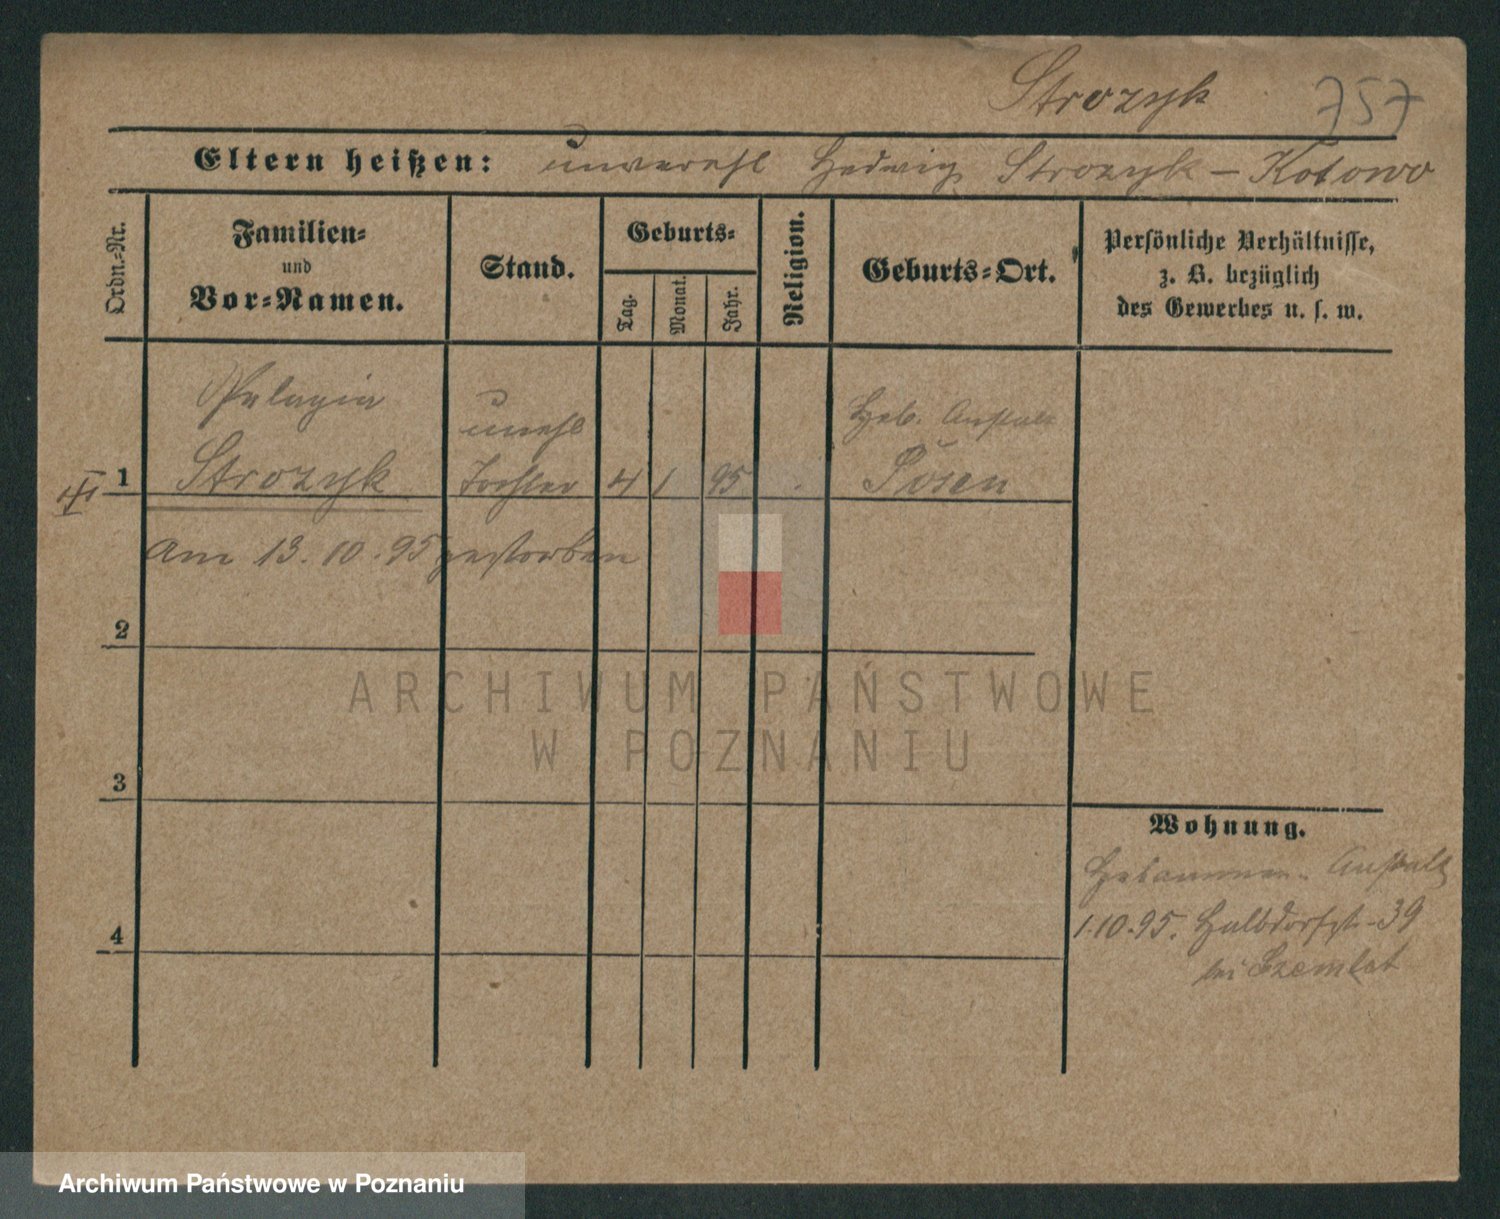 Strozyk 757
Eltern heißen: unverehl Hedwig Strozyk – Kotowo
Ordn.-Nr.
Familien-
und
Vor-Namen.
Stand.
Geburts-
Tag.
Monat.
Jahr.
Religion.
Geburts-Ort.
Persönliche Verhältnisse,
z. B. bezüglich
des Gewerbes u. s. w.
Pelagia unehl Heb. Anstalt
1 Strozyk Tochter 4 1 95 Posen
Am 13.10.95 gestorben
2
3
4
ARCHIWUM PAŃSTWOWE
W POZNANIU
Wohnung.
Hebammen-Anstalt
1.10.95. Halbdorfst. 39
bei
Archiwum Państwowe w Poznaniu